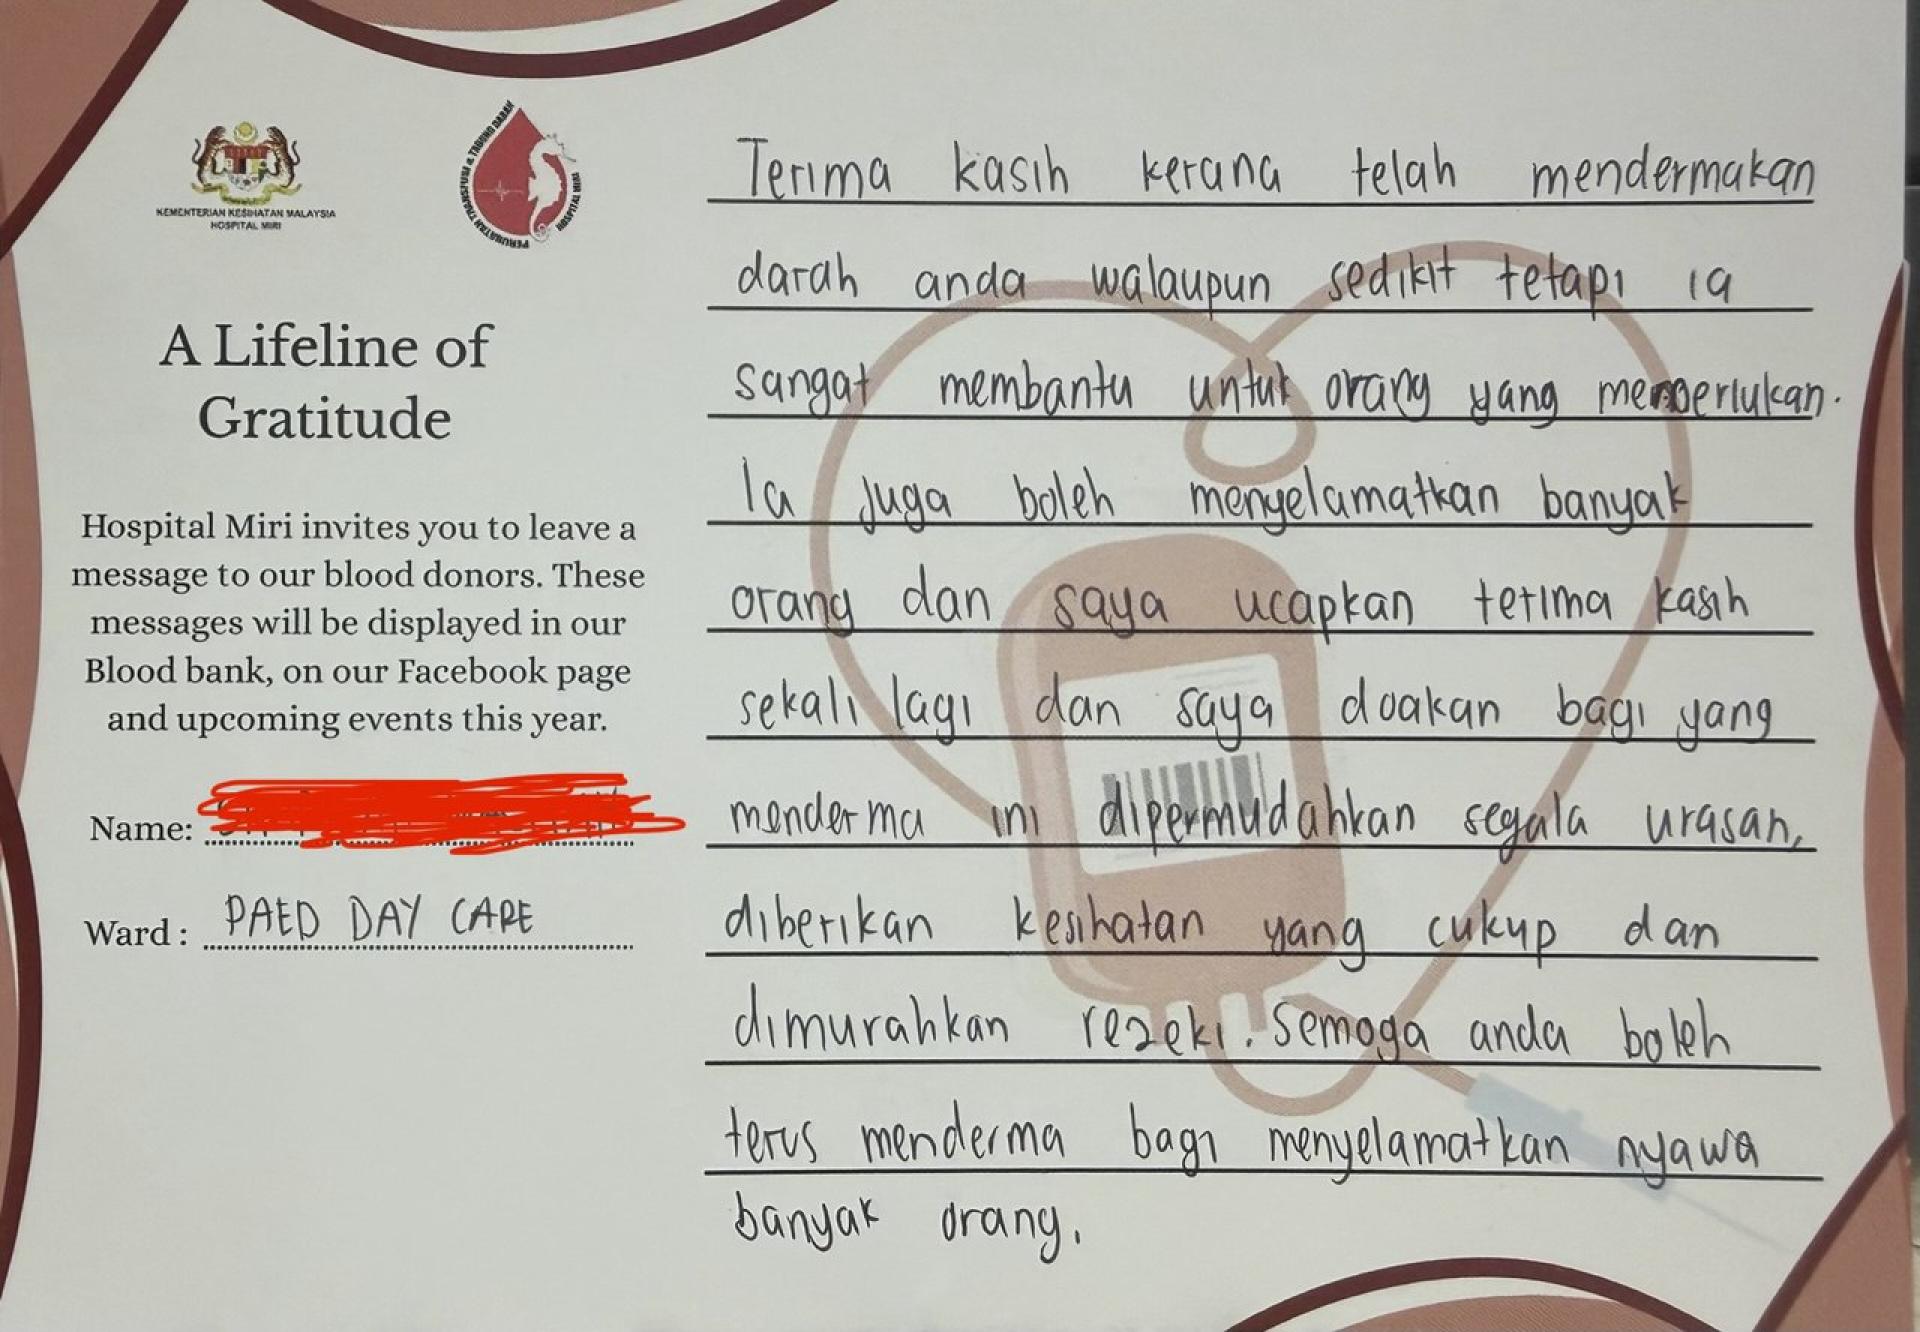 KEMENTERIAN KESIHATAN MALAYSIA
HOSPITAL MIRI
PERKHIDMATAN TRANSFUSI & TABUNG DARAH
HOSPITAL MIRI
A Lifeline of
Gratitude
Hospital Miri invites you to leave a
message to our blood donors. These
messages will be displayed in our
Blood bank, on our Facebook page
and upcoming events this year.
Name:
Ward : PAED DAY CARE
Terima kasih kerana telah mendermakan
darah anda walaupun sedikit tetapi ia
sangat membantu untuk orang yang memperlukan.
Ia juga boleh menyelamatkan banyak
orang dan saya ucapkan terima kasih
sekali lagi dan saya doakan bagi yang
menderma ini dipermudahkan segala urasan,
diberikan kesihatan yang cukup dan
dimurahkan rezeki. Semoga anda boleh
terus menderma bagi menyelamatkan nyawa
banyak orang.